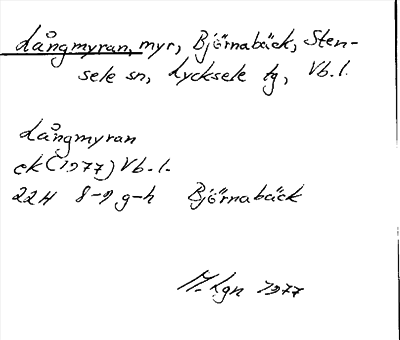 Långmyran, myr, Björnabäck, Sten-
sele sn, Lycksele tg, Vb. l.
Långmyran
ek (1977) Vb. l.
22H 8-9 g-h Björnabäck
M. Lgn 1977